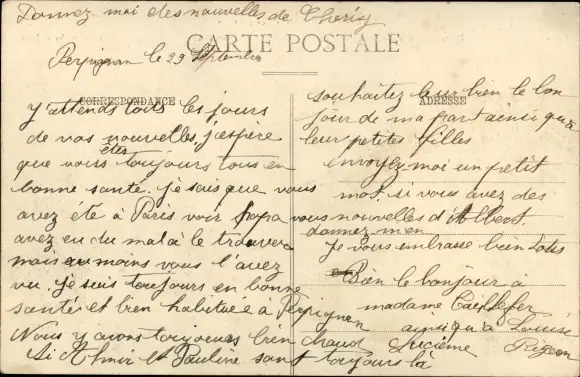 Donnez moi des nouvelles de Thérèse
CARTE POSTALE
Perpignan le 29 Septembre
CORRESPONDANCE
J'attends tous les jours
de vos nouvelles, j'espère
que vous êtes toujours tous en
bonne santé. je sais que vous
avez été à Paris voir papa vous
avez eu du mal à le trouver
mais au moins vous l'avez
vu. je suis toujours en bonne
santé et bien habituée à Perpignan
Nous y avons toujours bien chaud
Si Almir et Pauline sont toujours là
ADRESSE
souhaitez leur bien le bon
jour de ma part ainsi qu'à
leur petites filles
envoyez-moi un petit
mot. si vous avez des
nouvelles d'Albert.
donnez m'en
Je vous embrasse bien tous
Bien le bonjour à
madame
ainsi qu'à Louise
Lucienne Pigeon